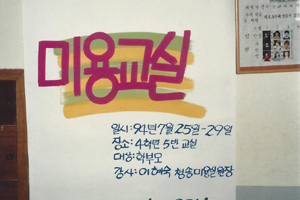 미용교실
일시: 94년 7월 25일-29일
장소: 4학년 5반 교실
대상: 학부모
강사: 이혜숙 청송미용실원장